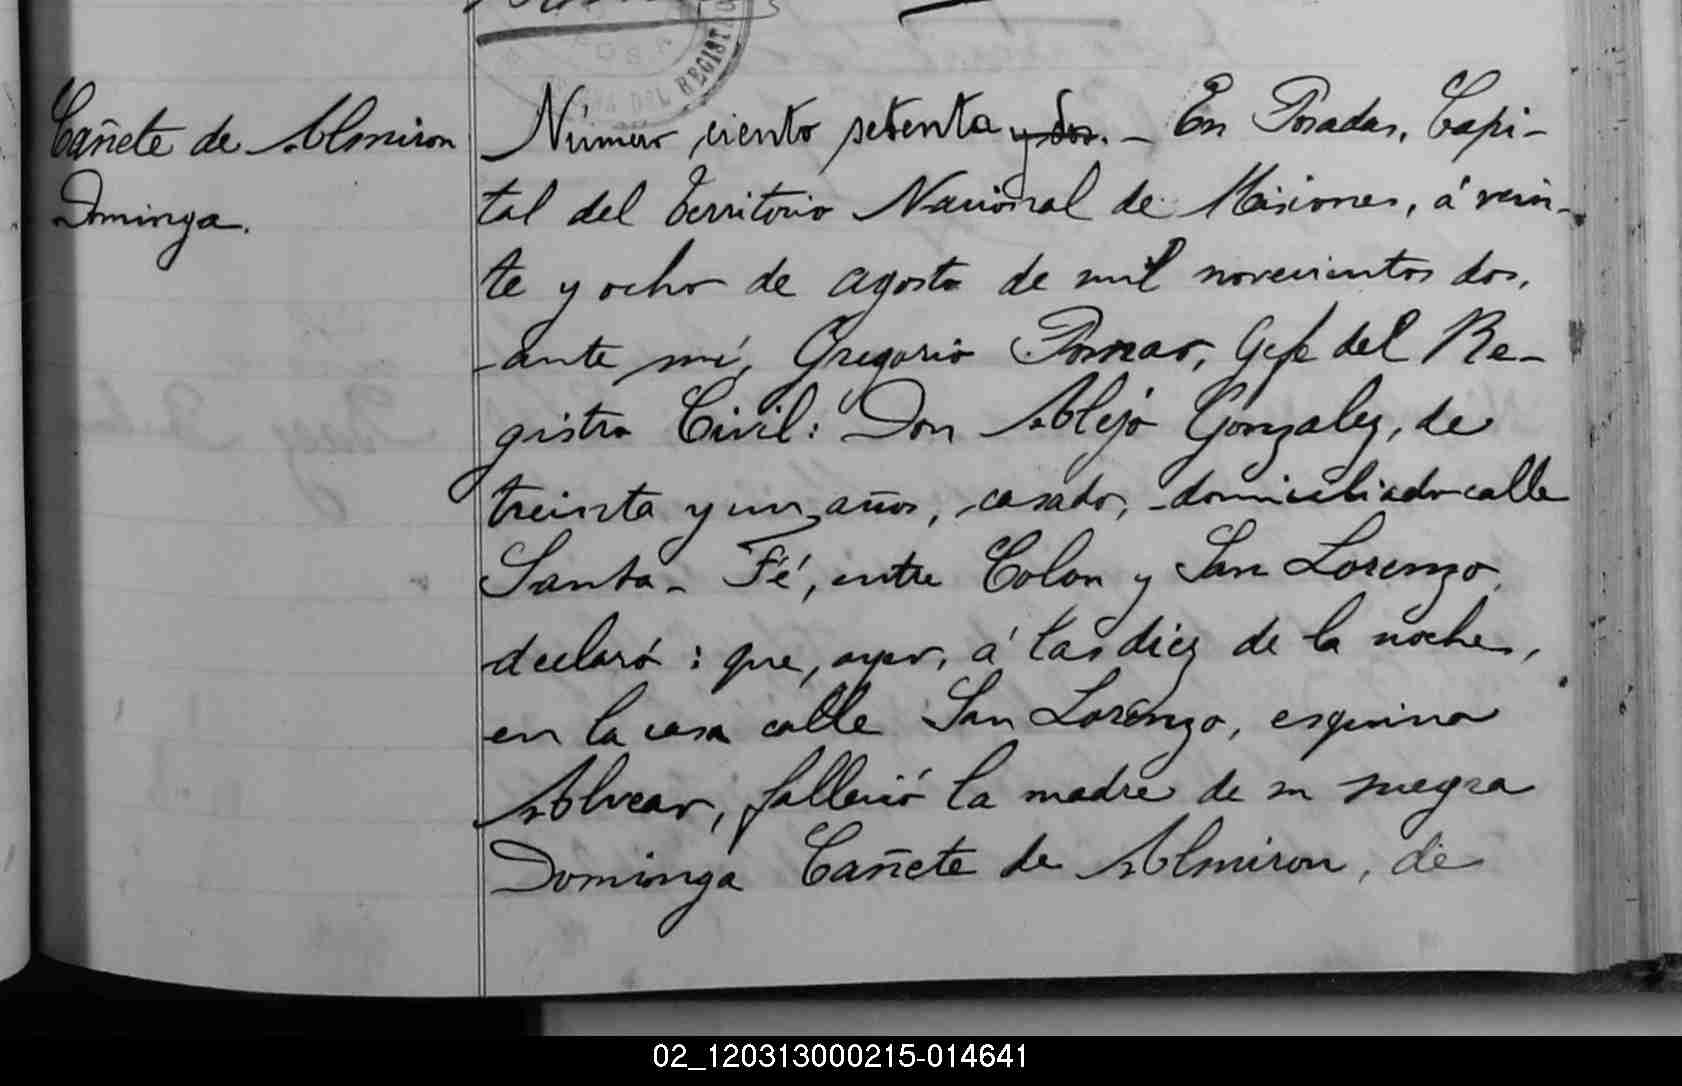 DEL REGIST
Cañete de Almiron
Dominga.
Número ciento setenta y dos. – En Posadas, Capi-
tal del Territorio Nacional de Misiones, á vein-
te y ocho de agosto de mil novecientos dos,
ante mí, Gregorio Pomar, Gefe del Re-
gistro Civil: Don Alejo Gonzalez, de
treinta y un años, casado, domiciliado calle
Santa-Fé, entre Colon y San Lorenzo,
declaró: que, ayer, á las diez de la noche,
en la casa calle San Lorenzo, esquina
Alvear, falleció la madre de su suegra
Dominga Cañete de Almiron, de
02_120313000215-014641